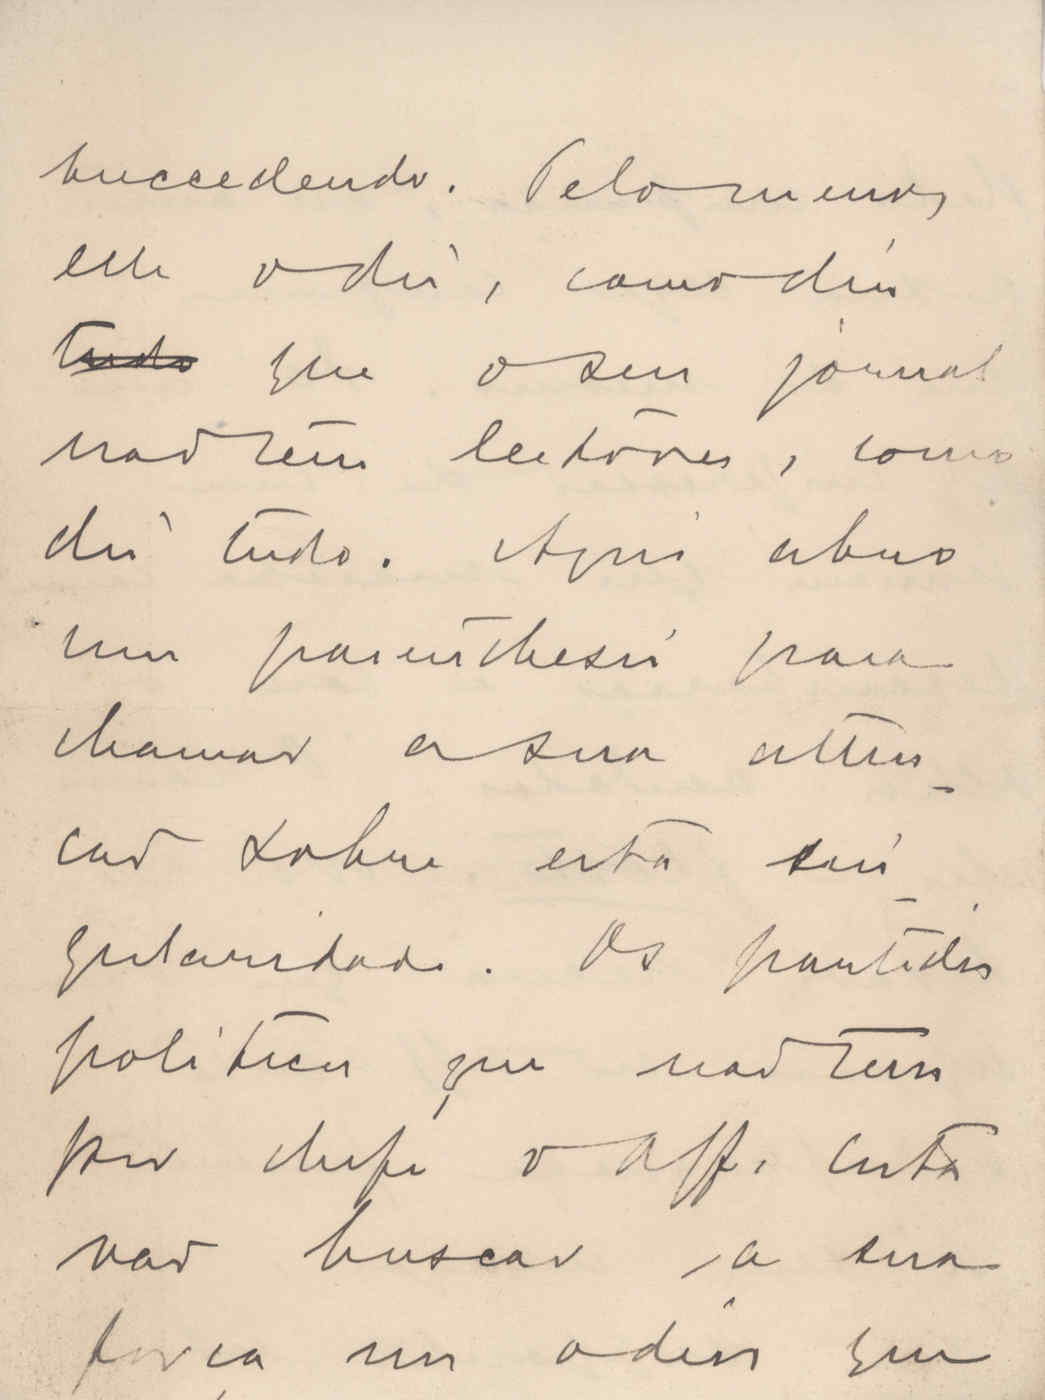 succedendo. Pelo menos
elle o diz, como diz
tudo que o seu jornal
não tem leitores, como
diz tudo. Aqui abro
um parenthesis para
chamar a sua atten-
ção sobre esta sin-
gularidade. Os partidos
politicos que não tem
por chefe o Aff. Costa
vão buscar a sua
força no odio que